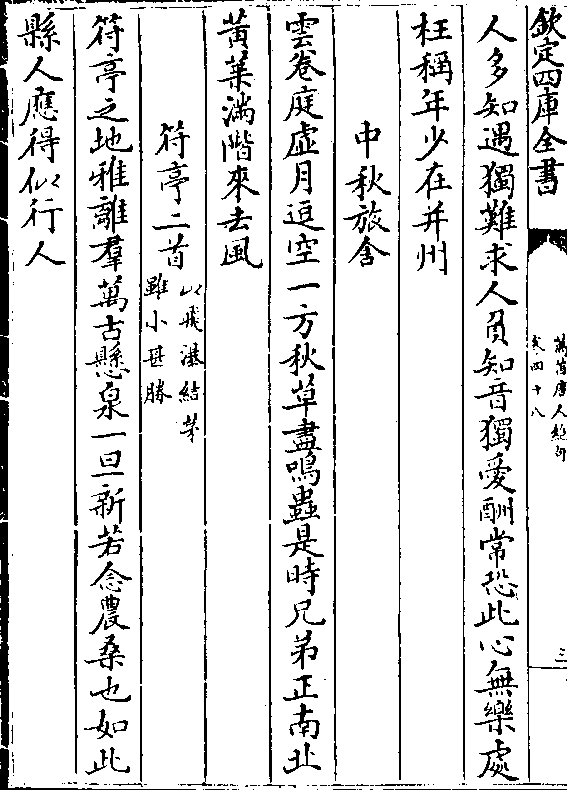 欽定四庫全書
萬首唐人絶句
卷四十八
三
人多知遇獨難求人負知音獨愛酬常恐此心無樂處
枉稱年少在并州
中秋旅舍
雲卷庭虛月逗空一方秋草盡鳴蟲是時兄弟正南北
黄葉滿階來去風
符亭二首
以飛瀑結茅
雖小甚勝
符亭之地雅離羣萬古懸泉一旦新若念農桑也如此
縣人應得似行人